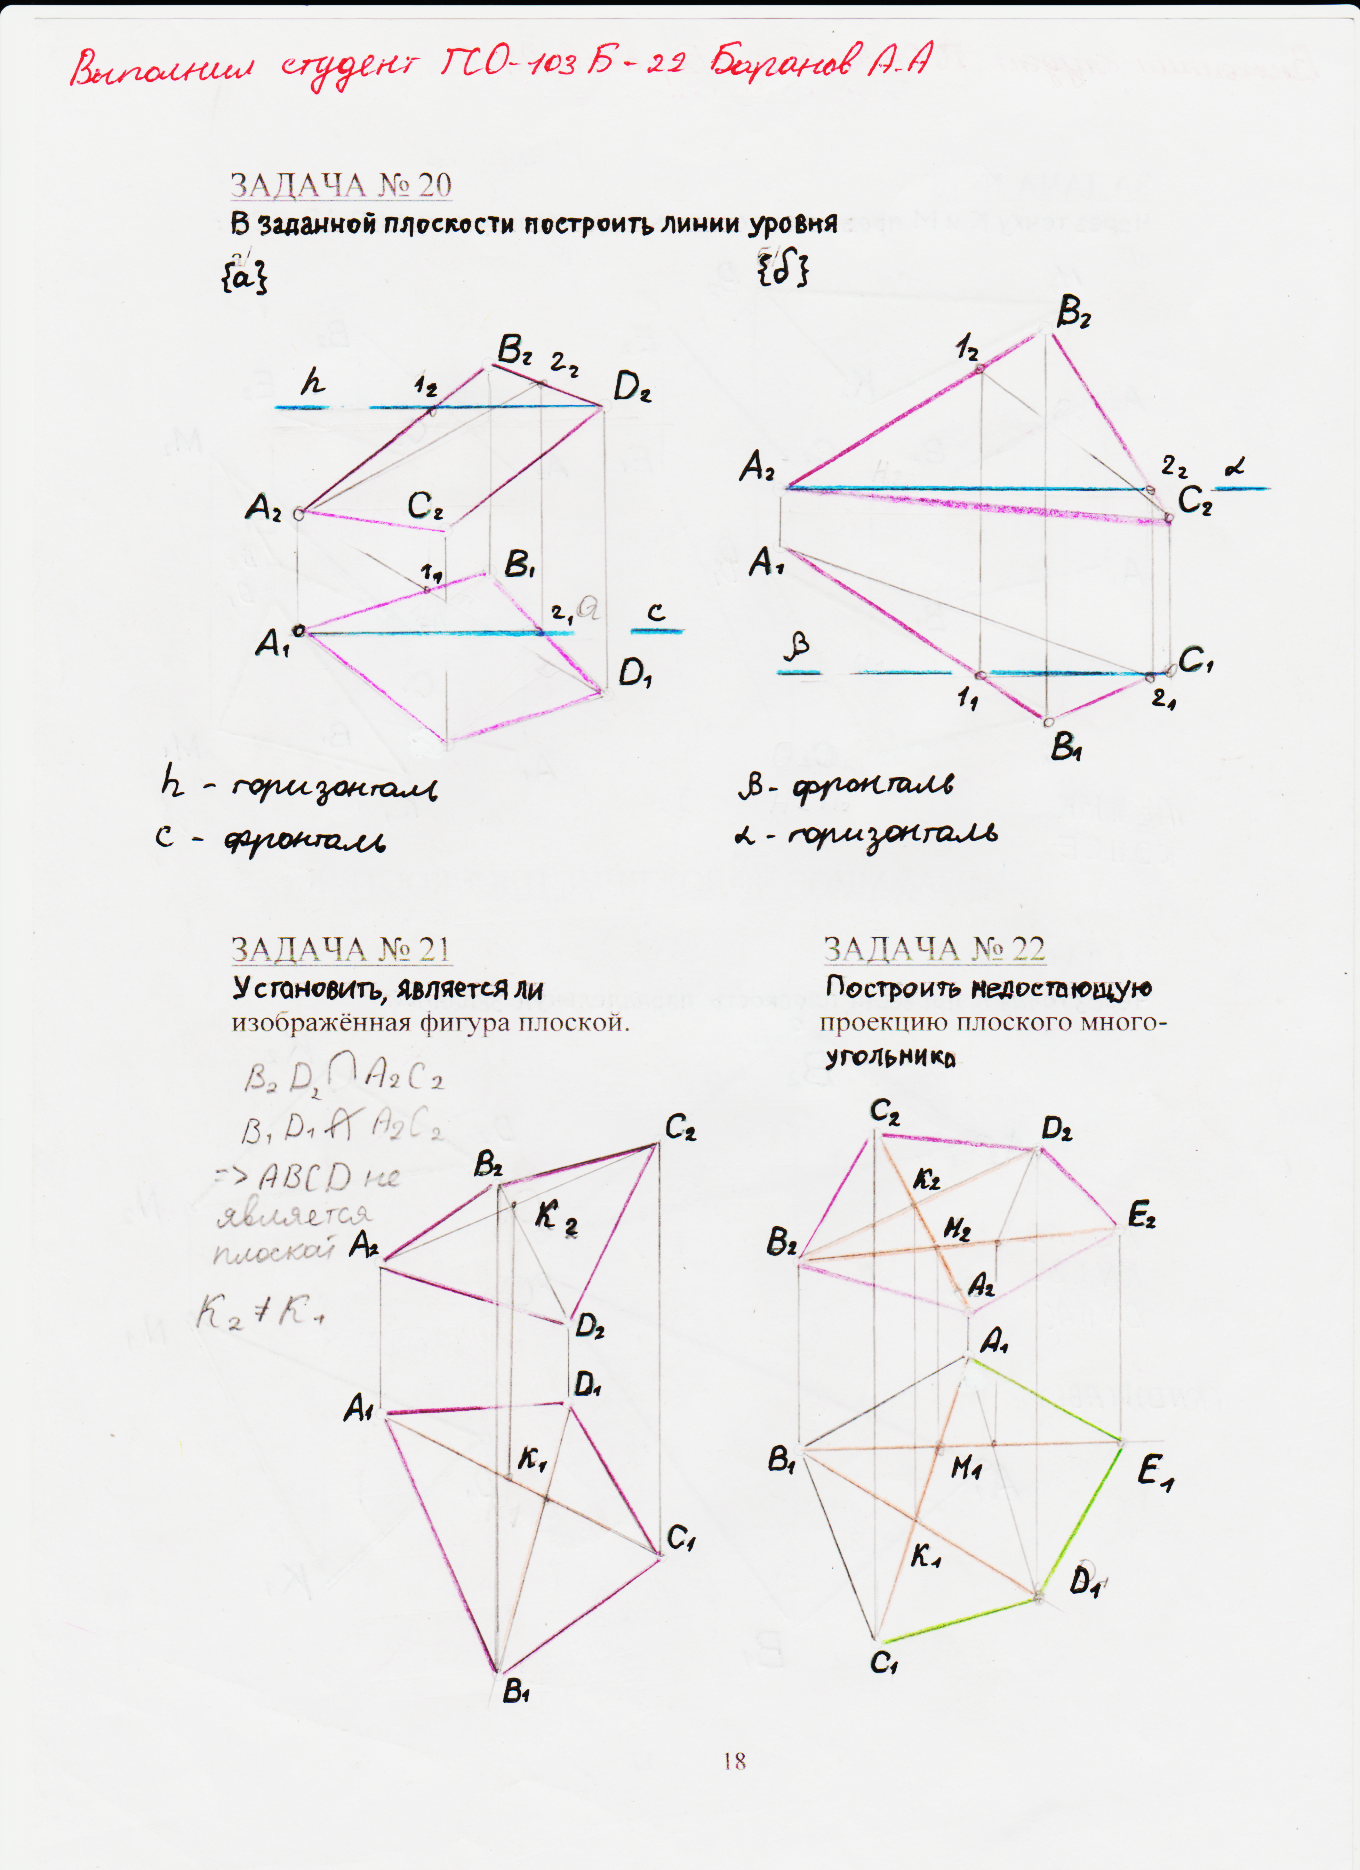 Выполнил студент ПСО-103 Б-22 Баранов А.А
ЗАДАЧА № 20
В заданной плоскости построить линии уровня
{а}
{б}
B₂ 2₂
h 1₂ D₂
A₂ C₂
1₁ B₁
A₁ 2₁ C
D₁
h - горизонталь
C - фронталь
B₂
1₂
A₂ 2₂ α
C₂
A₁
β C₁
1₁ 2₁
B₁
β - фронталь
α - горизонталь
ЗАДАЧА № 21
Установить, является ли
изображённая фигура плоской.
B₂ D₂ ∩ A₂ C₂
B₁ D₁ ∩ A₂ C₂
=> ABCD не
является
плоской
K₂ ≠ K₁
C₂
B₂
K₂
A₂
D₂
D₁
A₁
K₁
C₁
B₁
ЗАДАЧА № 22
Построить недостающую
проекцию плоского много-
угольника
C₂ D₂
K₂
E₂
B₂ M₂
A₂
A₁
B₁ M₁ E₁
K₁
D₁
C₁
18